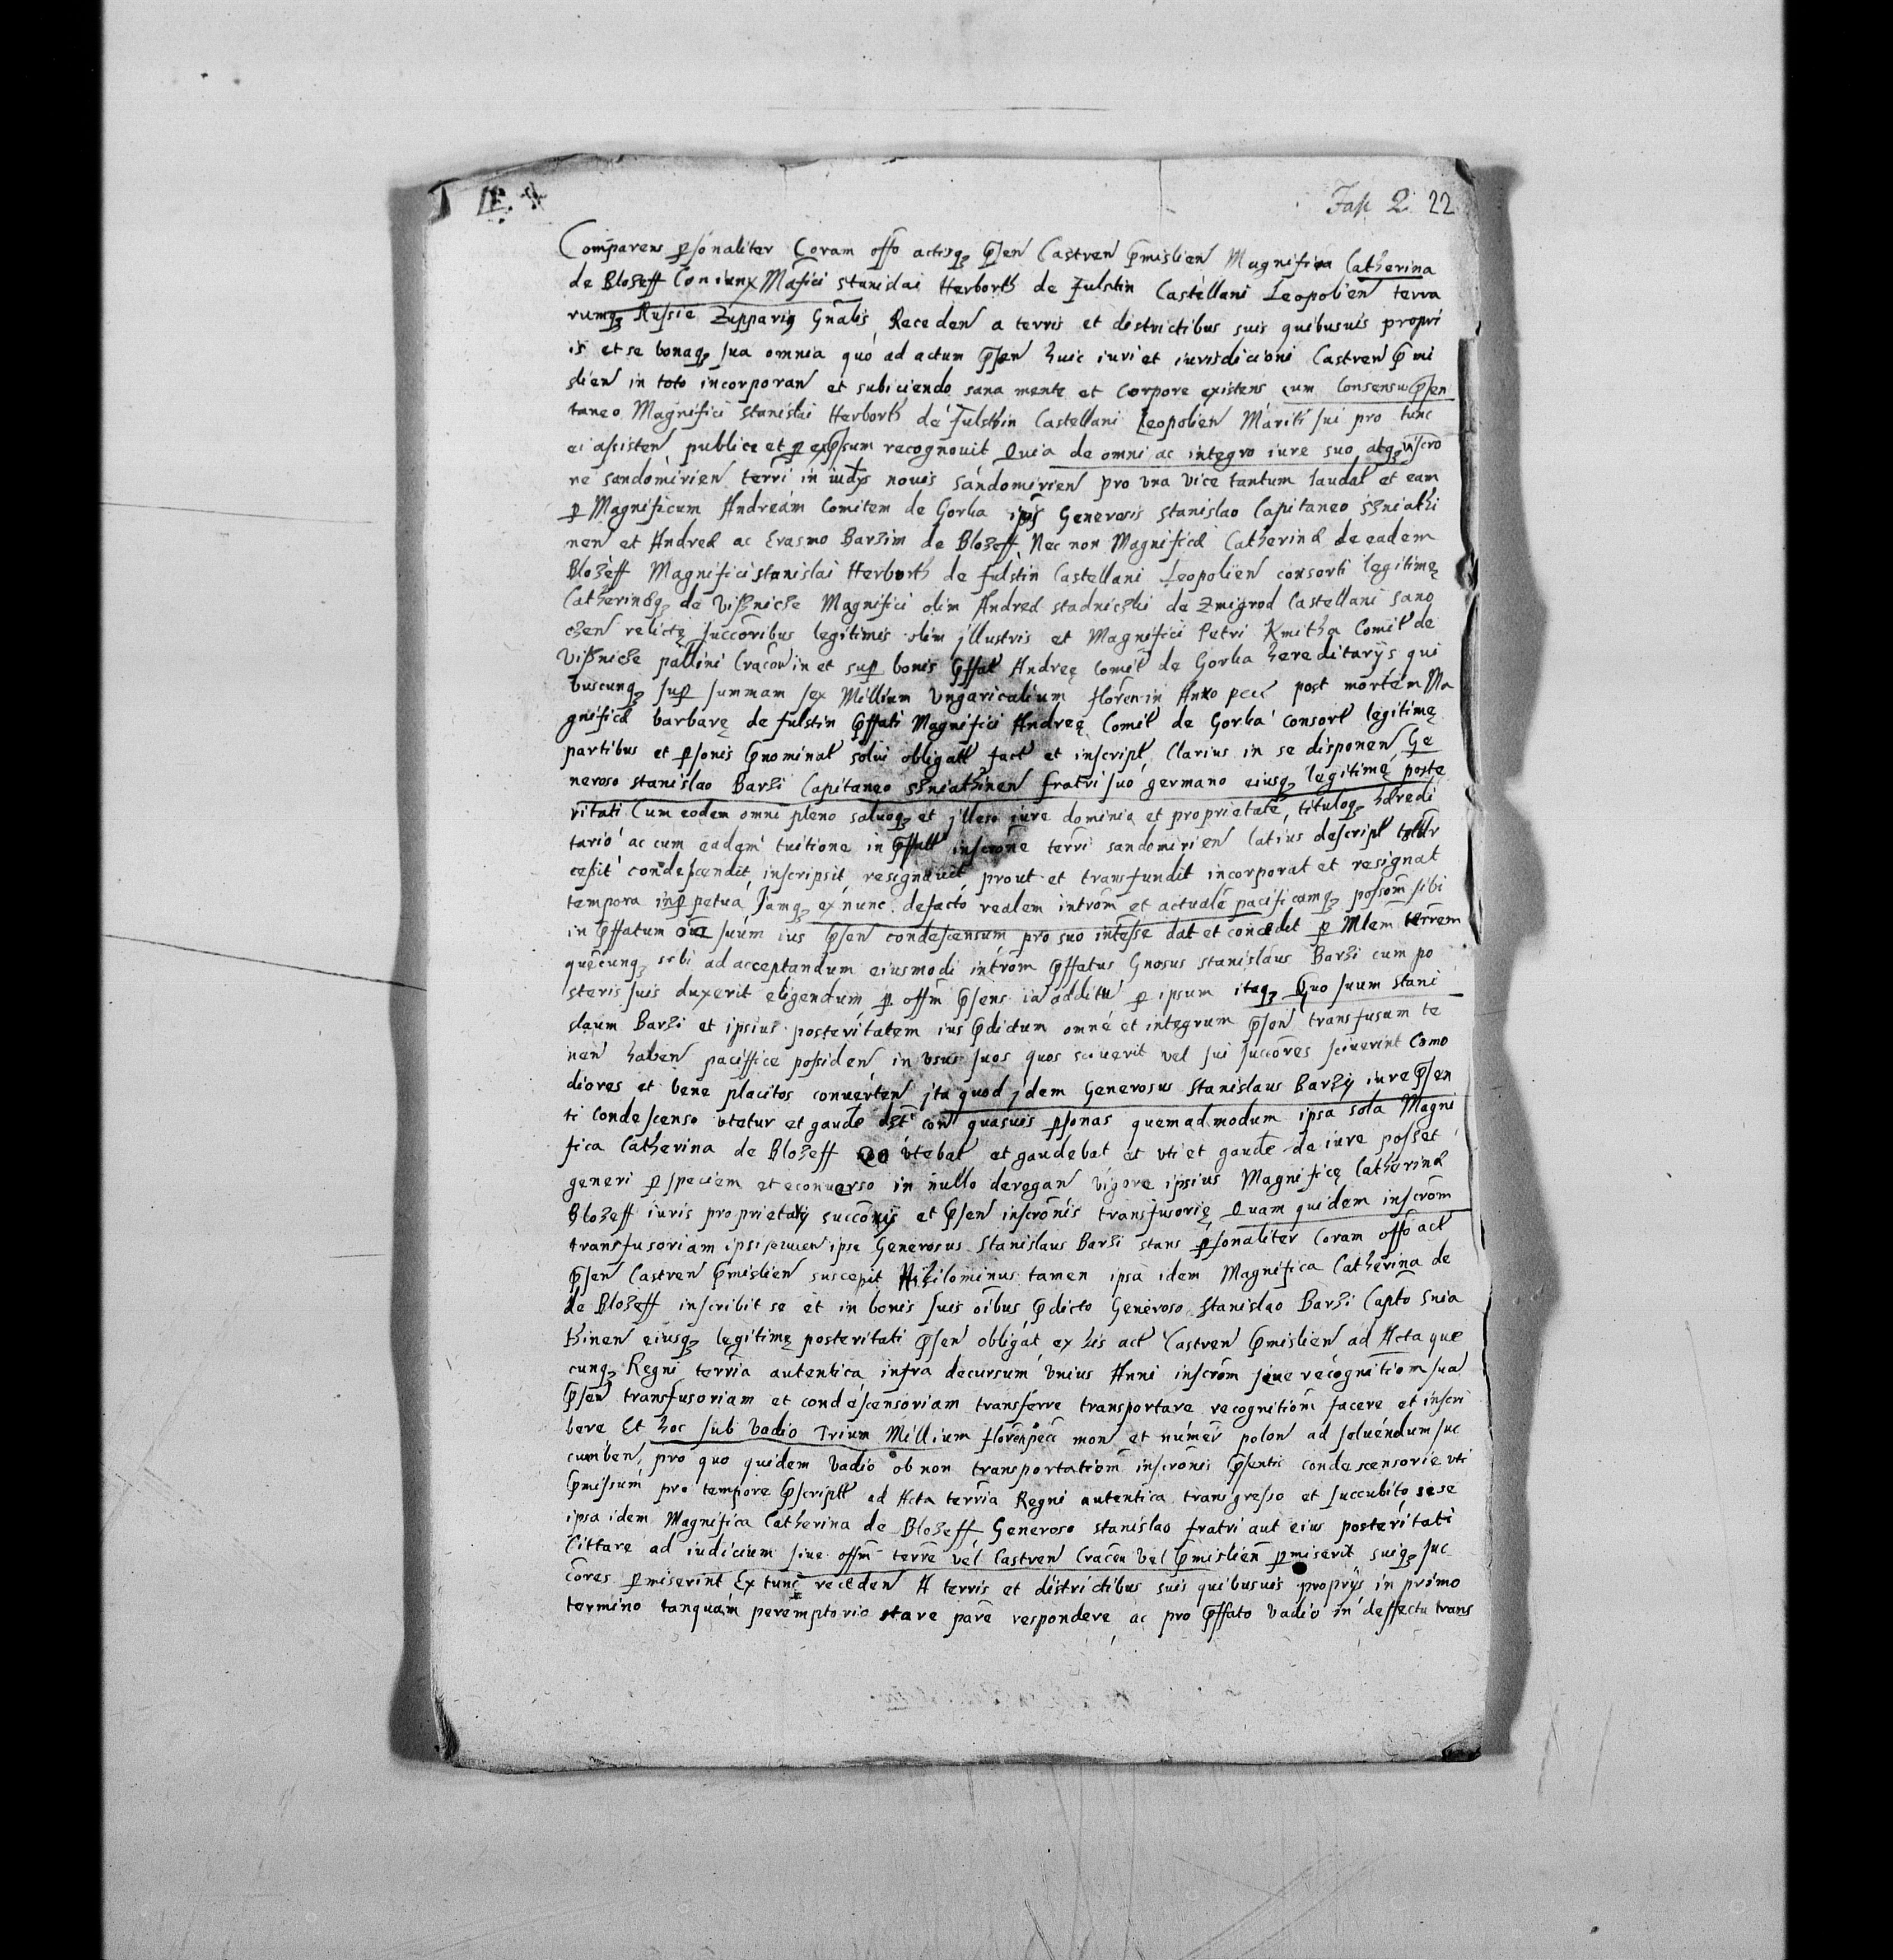 Fasc 2 22
Comparens psonaliter Coram offo actisqz pnsen Castren Pmislien Magnifica Catherina
de Blozeff Coniunx Mafici Stanislai Herborth de Fulstin Castellani Leopolien terra
rumqz Russie Zupparij Gnalis Receden a terris et districtibus suis quibusuis propri
is et se bonaqz sua omnia quo ad actum pnsen huic iuri et iurisdicioni Castren Pmi
slien in toto incorporan et subiciendo sana mente et Corpore existens cum Consensu pnsen
taneo Magnifici Stanislai Herborth de Fulsthin Castellani Leopolien Mariti sui pro tunc
ei assisten publice et p expssum recognouit Quia de omni ac integro iure suo atqz inscro
ne Sandomirien terri in iudys nouis Sandomirien pro vna vice tantum laudat et eam
p Magnificum Andream Comitem de Gorka ipis Generosis Stanislao Capitaneo Szniathi
nen et Andreæ ac Erasmo Barzim de Blozeff Nec non Magnificæ Catherinæ de eadem
Blozeff Magnifici Stanislai Herborth de Fulstin Castellani Leopolien consorti legitimę
Catherinæqz de Visznicze Magnifici olim Andreæ Stadniczki de Zmigrod Castellani Sano
czen relictę succoribus legitimis olim jllustris et Magnifici Petri Kmitha Comit de
Visznicze pallini Cracouin et sup bonis pffat Andreę Comit de Gorka hereditarÿs qui
buscunqz sup summam sex Millium Vngaricalium floren in Auro post mortem Ma
gnificæ barbarę de fulstin pffati Magnifici Andreę Comit de Gorka consort legitimę
partibus et psonis pnominat solui obligatt fact et inscript Clarius in se disponen Ge
neroso Stanislao Barzi Capitaneo Szniathinen fratri suo germano eiusqz legitimę postę
ritati Cum eodem omni pleno saluoqz et jlleso iure dominio et proprietate, tituloqz hæredi
tario ac cum eadem tuitione in pffatt inscrone terri Sandomirien latius descript
cessit condescendit, inscripsit resignauit prout et transfundit incorporat et resignat
tempora inp petua, Jamqz ex nunc defacto realem introm et actuale pacificamqz possom sibi
in pffatum suum ius pnsen condescensum pro suo intesse dat et concedit p Mlem terrem
quęcunqz sibi ad acceptandum eiusmodi introm pffatus Gnosus Stanislaus Barzi cum po
steris suis duxerit eligendum p offm pnsens p ipsum itaqz suum Stani
slaum Barzi et ipsius posteritatem ius pdictum omne et integrum pnsen transfusum te
nen haben paciffice possiden in vsus suos quos sciuerit vel sui succores sciuerint Como
diores et bene placitos conuerten jta quod jdem Generosus Stanislaus Barzÿ iure pnsen
ti condescenso vtetur et gaude con quasuis psonas quemadmodum ipsa sola Magni
fica Catherina de Blozeff eo vtebat et gaudebat et vti et gaude de iure posset
generi p speciem et econuerso in nullo derogan vigore ipsius Magnificę Catherinæ
Blozeff iuris proprietatis et pnsen inscronis transfusorię Quam quidem inscrom
transfusoriam ipse Generosus Stanislaus Barzi stans psonaliter Coram offo act
pnsen Castren Pmislien suscepit Nihilominus tamen ipsa idem Magnifica Catherina de
de Blozeff inscribit se et in bonis suis oibus pdicto Generoso Stanislao Barzi Capto Snia
thinen eiusqz legitimę posteritati pnsen obligat ex his act Castren Pmislien ad Acta que
cunqz Regni terria autentica infra decursum vnius Anni inscrom siue recognitiom sua
pnsen transfusoriam et condescensoriam transferre transportare recognitiom facere et inscri
bere Et hoc sub Vadio Trium Millium floren pecc mon et numer polon ad soluendum suc
cumben, pro quo quidem Vadio ob non transportatiom inscronis psentis condescensorie vti
pmissum pro tempore pscriptt ad Acta terria Regni autentica transgresso et succubito sese
ipsa idem Magnifica Catherina de Blozeff Generoso Stanislao fratri aut eius posteritati
Cittare ad iudicium siue offm terre vel Castren Cracou Vel Pmislien pmiserit suiqz suc
cores pmiserint Ex tunc receden A terris et districtibus suis quibusuis proprÿs in primo
termino tanquam peremptorio stare pare respondere ac pro pffato Vadio in deffectu trans